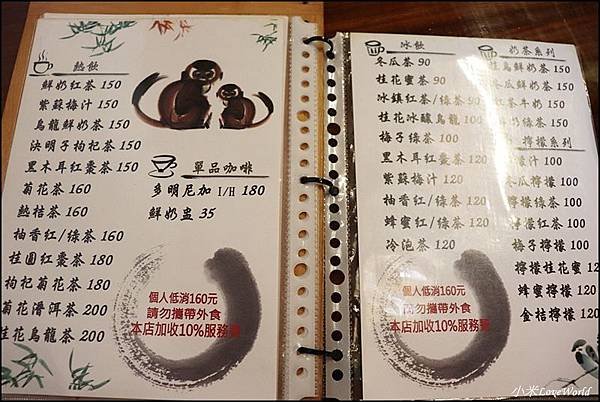 熱飲
鮮奶紅茶 150
紫蘇梅汁 150
烏龍鮮奶茶 150
決明子枸杞茶 150
黑木耳紅棗茶 150
菊花茶 160
熱桔茶 160
柚香紅/綠茶 160
桂圓紅棗茶 180
枸杞菊花茶 180
菊花普洱茶 200
桂花烏龍茶 200
單品咖啡
多明尼加 I/H 180
鮮奶盅 35
個人低消160元
請勿攜帶外食
本店加收10%服務費
冰飲
冬瓜茶 90
桂花蜜茶 90
冰鎮紅茶/綠茶 90
桂花冰釀烏龍 100
梅子綠茶 100
黑木耳紅棗茶 100
紫蘇梅汁 120
柚香紅/綠茶 120
蜂蜜紅/綠茶 120
冷泡茶 120
個人低消160元
請勿攜帶外食
本店加收10%服務費
奶茶系列
烏鮮奶茶 150
冬瓜鮮奶 150
紅茶牛奶 150
奶綠茶 150
檸檬系列
檸檬汁 100
冬瓜檸檬 100
檸檬綠茶 100
檸檬紅茶 100
梅子檸檬 100
檸檬桂花蜜
蜂蜜檸檬 120
金桔檸檬 120
小米LoveWorld